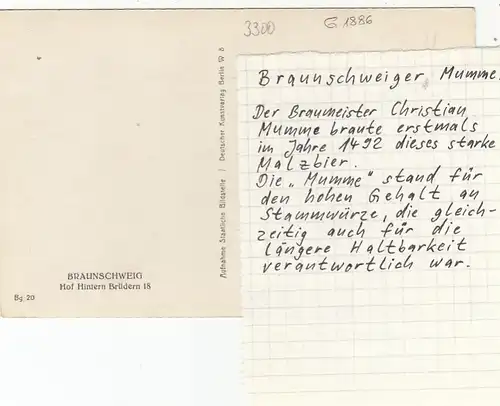 3300
G 1886
Aufnahme Staatliche Bildstelle / Deutscher Kunstverlag Berlin W 8
BRAUNSCHWEIG
Hof Hintern Brüdern 18
Bg 20
Braunschweiger Mumme.
Der Braumeister Christian
Mumme braute erstmals
im Jahre 1492 dieses starke
Malzbier.
Die „Mumme" stand für
den hohen Gehalt an
Stammwürze, die gleich-
zeitig auch für die
längere Haltbarkeit
verantwortlich war.